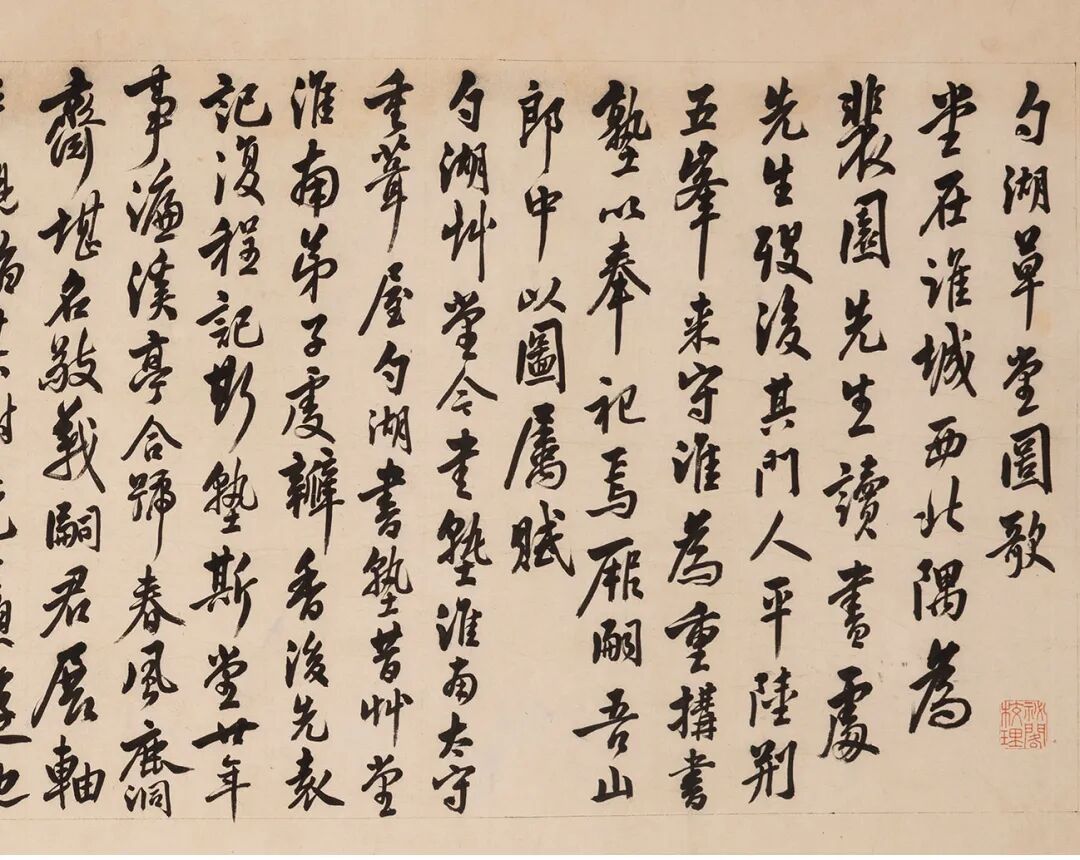 勺湖草堂圖歌
堂在淮城西北隅為
裴園先生讀書處
先生歿後其門人平陸荆
五峯来守淮為重搆書
塾以奉祀焉厥嗣吾山
郎中以圖屬賦
勺湖艸堂今書塾淮南太守
重葺屋勺湖書塾昔艸堂
淮南弟子處瓣香後先袁
記復程記斯塾斯堂廿年
事濂溪亭合號春風鹿洞
齋堪名敬義嗣君展軸
祕閣校理